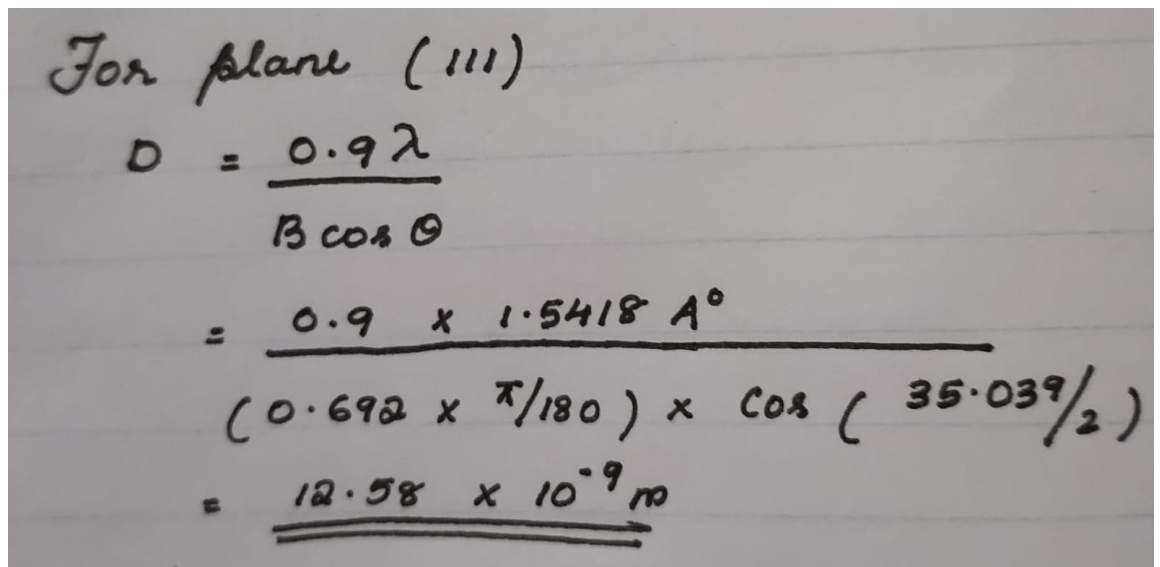 For plane (111)
D = 0.9λ
B cos θ
= 0.9 x 1.5418 A°
(0.692 x π/180) x Cos (35.039/2)
= 12.58 x 10⁻⁹ m